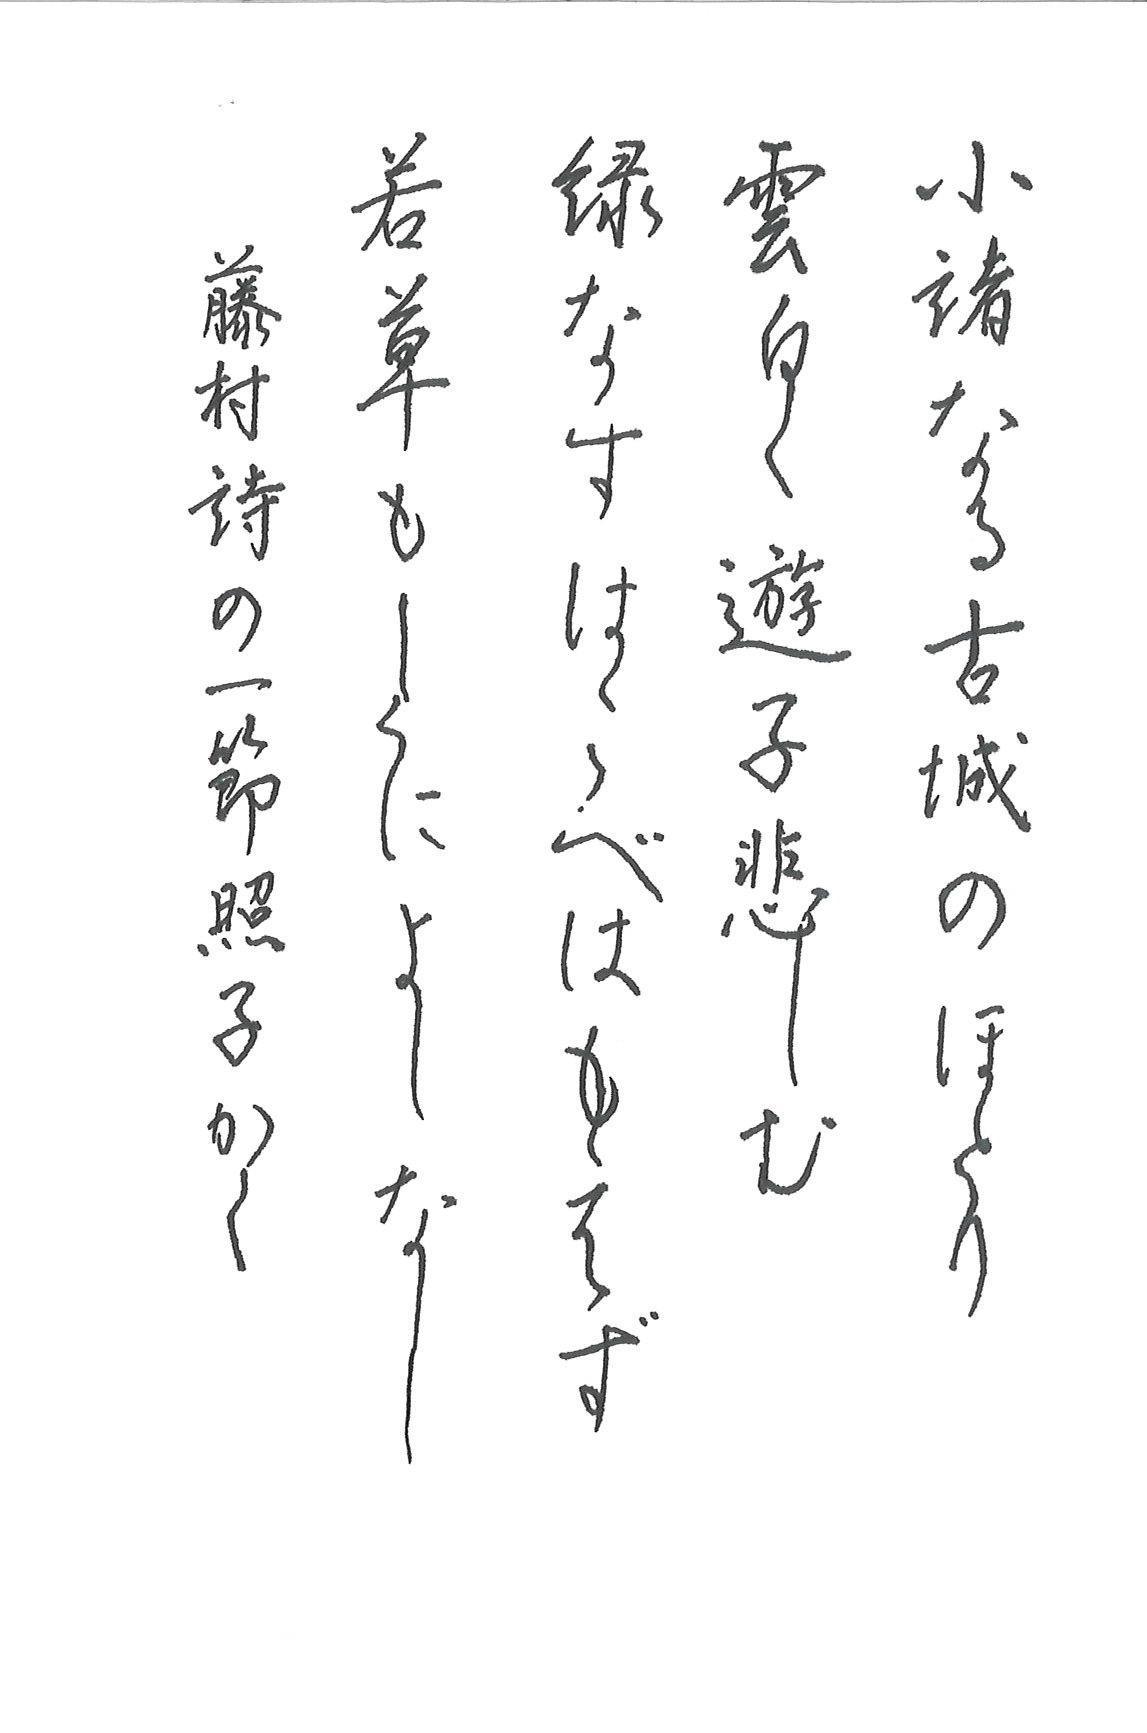 小諸なる古城のほとり
雲白く遊子悲しむ
緑なすはこべはもえず
若草もしくによしなし
藤村詩の一節照子かく